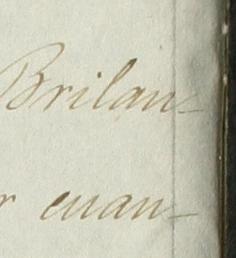 Brilan-
r cuan-